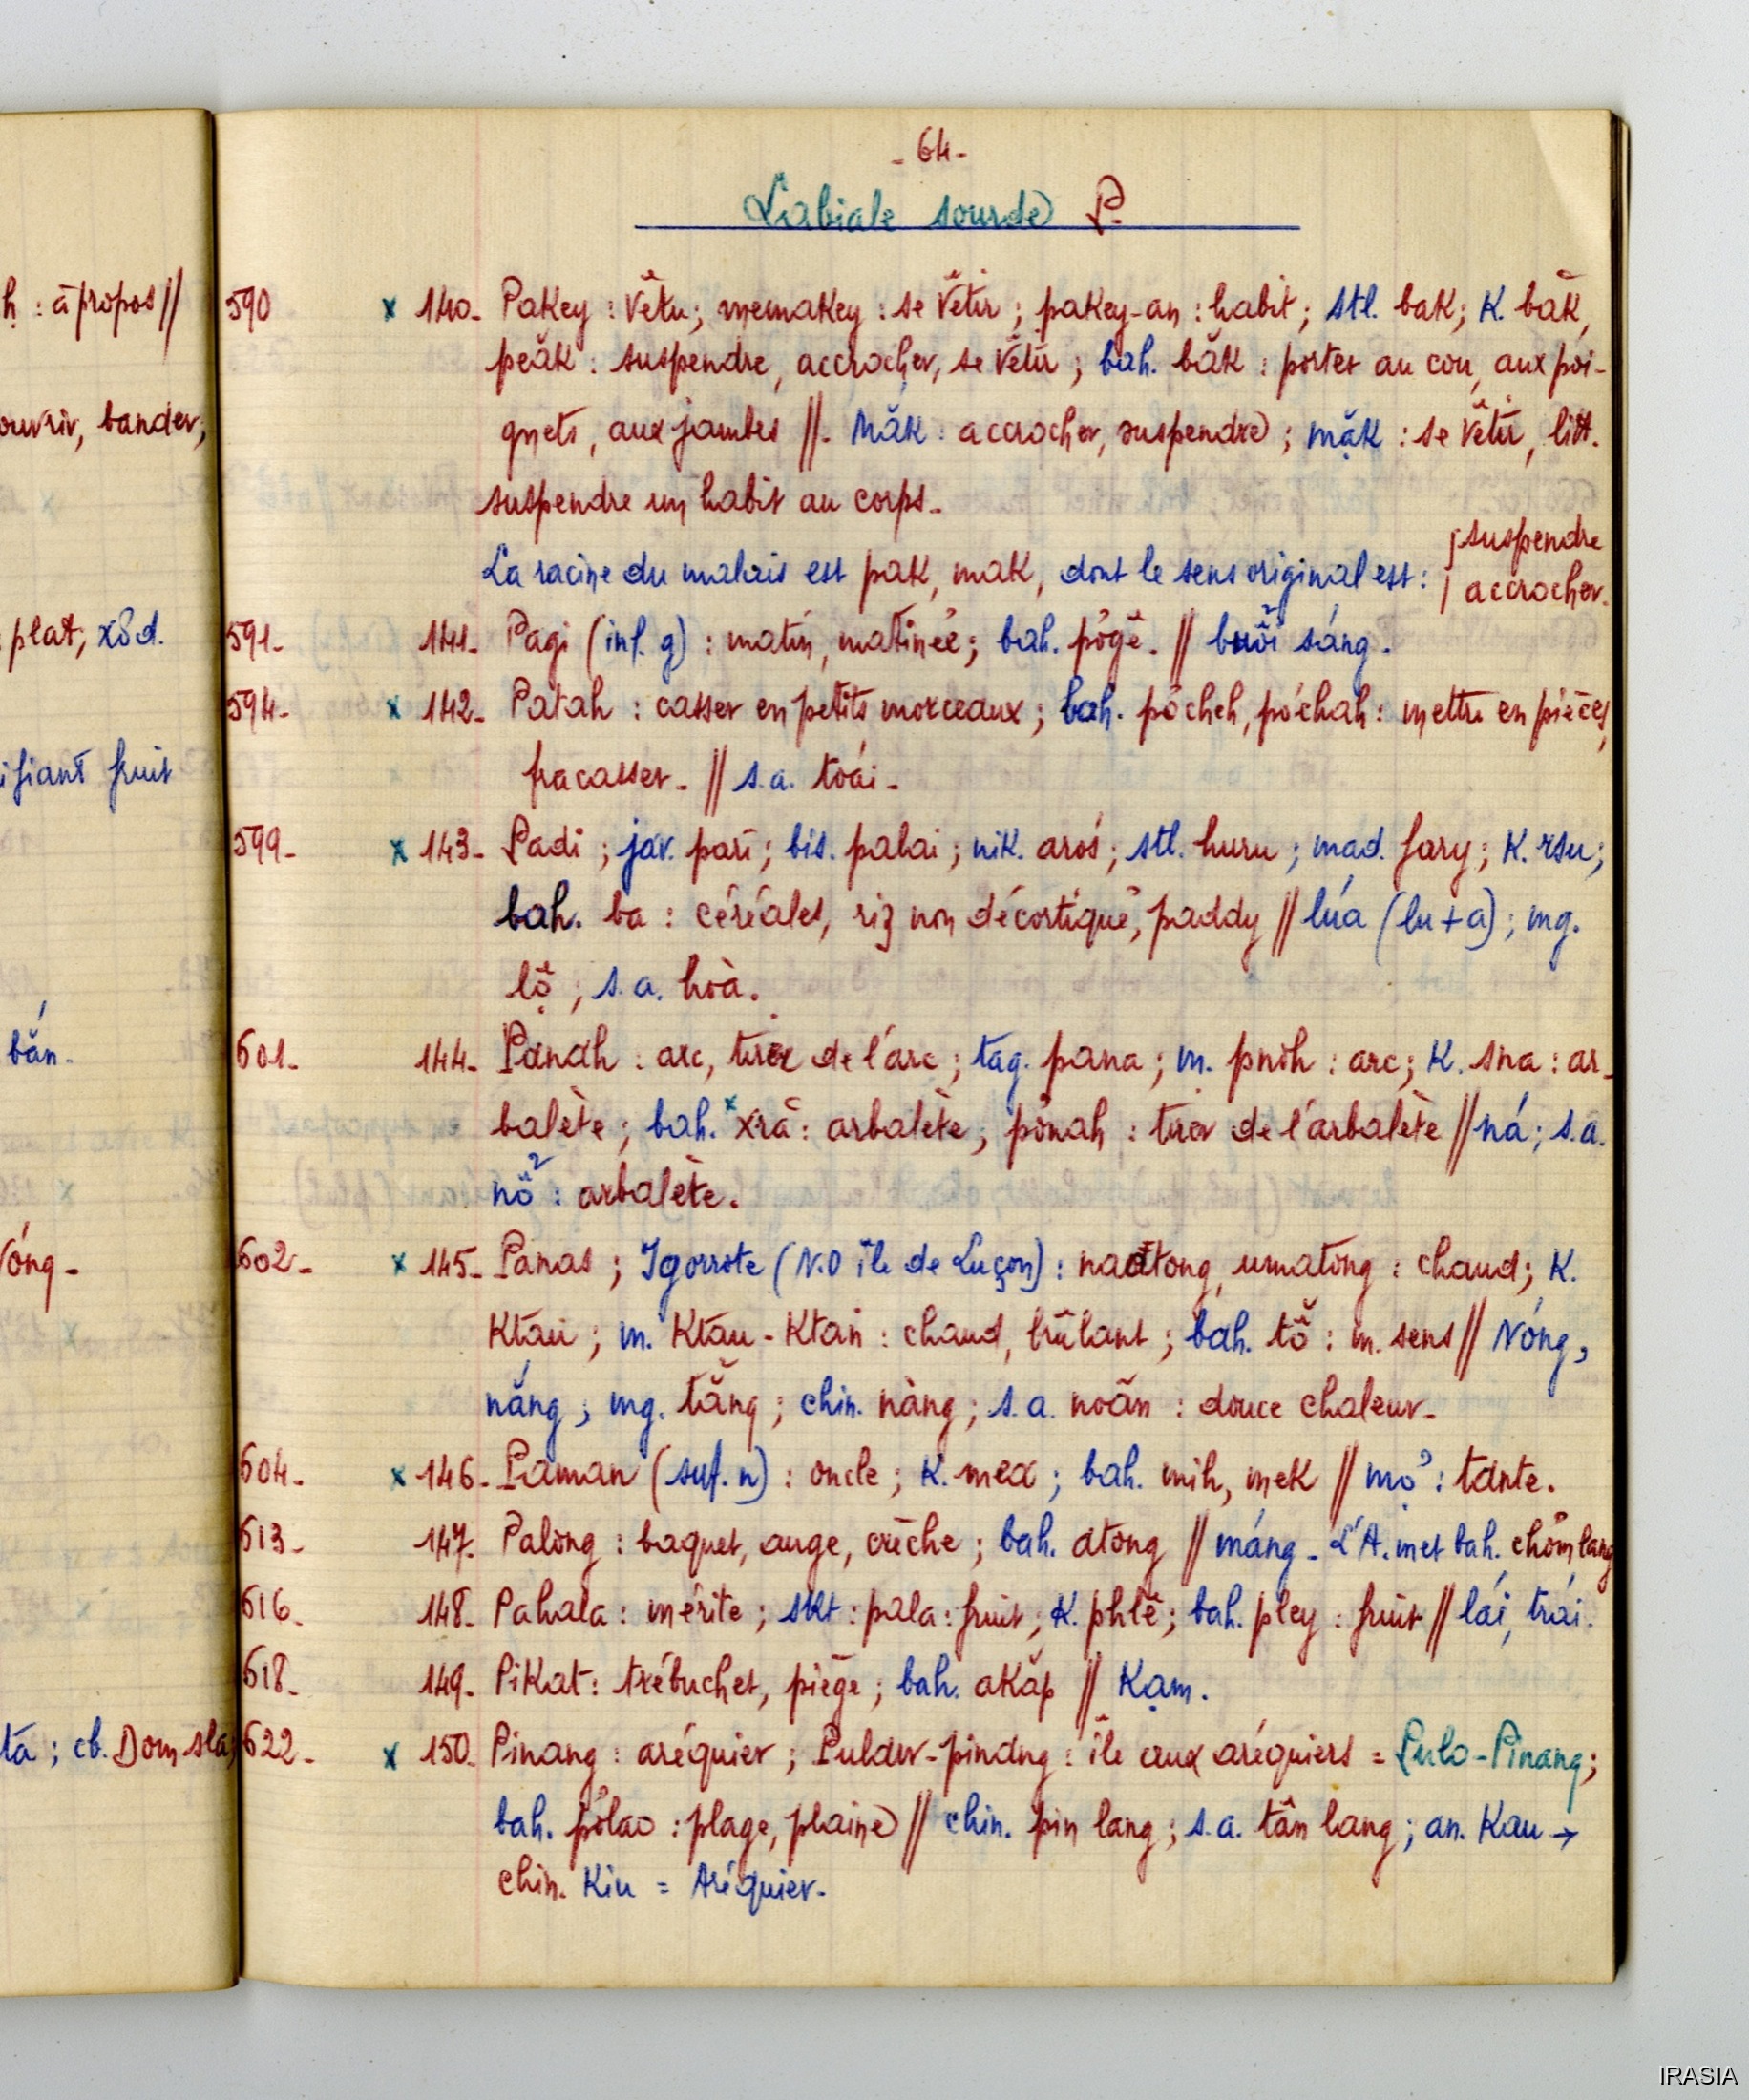 - 64 -
Labiale sourde P.
h : à propos //
ouvrir, bander;
plat; xŏd.
ifiant fruit
bắn.
Nóng -
tă ; cb. Dom sla;
590 x 140- Pakey : Vêtu; memakey : se Vêtir ; pakey-an : habit ; stl. bak; K. băk,
peăk : suspendre, accrocher, se Vêtir ; bah. băk : porter au cou, aux poi-
gnets, aux jambes //. Măk : accrocher, suspendre ; mặk : se Vêtir, litt.
suspendre un habit au corps.
La racine du malais est pak, mak, dont le sens original est : { suspendre
accrocher.
591- 141- Pagi (inf. g) : matin, matinée; bah. pôgê. // buổi sáng.
594- x 142- Patah : casser en petits morceaux ; bah. pôcheh, pôchah : mettre en pièces,
fracasser - // s.a. toái -
599- x 143- Padi ; jav. pari ; bis. palai ; nik. arós ; stl. huru ; mad. fary ; K. rsu ;
bah. ba : céréales, riz non décortiqué, paddy // lúa (lu + a) ; mg.
lộ ; s.a. hoà.
601- 144- Panah : arc, tirer de l'arc ; tag. pana ; m. pnoh : arc ; K. sna : ar-
balète ; bah. x xră : arbalète ; pônah : tirer de l'arbalète // ná ; s.a.
nỗ : arbalète.
602- x 145- Panas ; Igorrote (N.O île de Luçon) : naatong, umatong : chaud ; K.
Ktau ; m. Ktau - Ktan : chaud, brûlant ; bah. tŏ : m. sens // Nóng,
nắng ; mg. tăng ; chin. nàng ; s.a. noãn : douce chaleur -
604- x 146- Paman (suf. n) : oncle ; K. mea ; bah. mih, mek // mợ : tante.
613- 147. Palong : baquet, auge, crèche ; bah. atong // máng - L'A. met bah. chômlang
616- 148- Pahala : mérite ; skt : pala : fruit ; K. phlê ; bah. pley : fruit // lái, trái.
618- 149- Pikat : trébuchet, piège ; bah. akăp // Kạm.
622- x 150- Pinang : aréquier ; Pulaw-pinang : île aux aréquiers = Pulo-Pinang ;
bah. pôlao : plage, plaine // chin. pin lang ; s.a. tân lang ; an. Kau →
chin. Kiu = Aréquier.
IRASIA